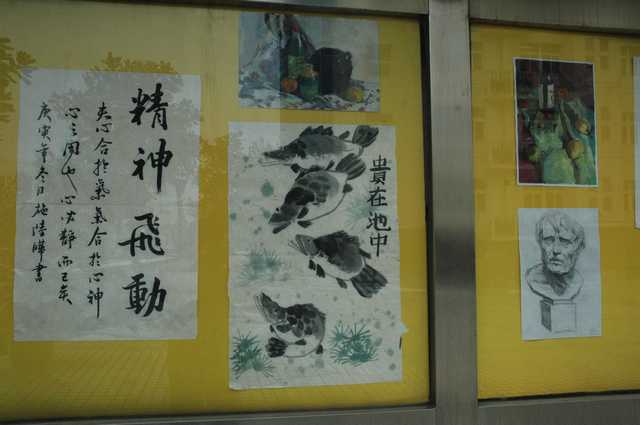 精神飛動
夫心合於氣氣合於心神
心之用也心必靜而已矣
庚寅年冬日施陸曄書
貴在池中